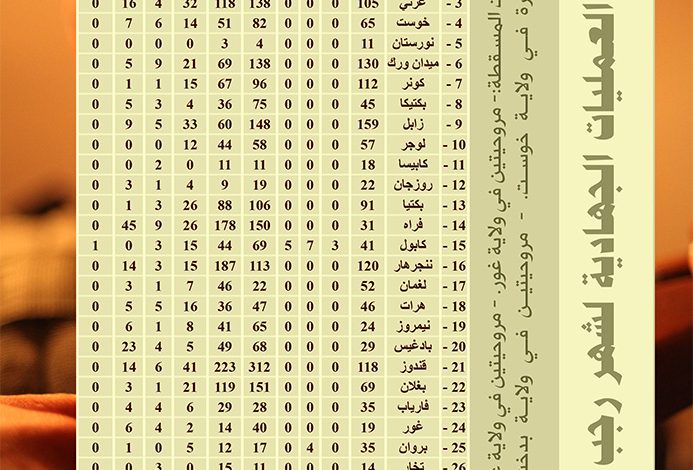 العمليات الجهادية لشهر رجب
المسقطة:- مروحيتين في ولاية غور. - مروحيتين في ولاية
في ولاية خوست. - مروحيتين في ولاية
3 - غزني 105 0 0 0 138 118 32 4 16 0
4 - خوست 65 0 0 0 82 51 14 6 7 0
5 - نورستان 11 0 0 0 4 3 0 0 0 0
6 - ميدان ورك 130 0 0 0 138 69 21 9 5 0
7 - كونر 112 0 0 0 96 67 15 1 1 0
8 - بكتيكا 45 0 0 0 75 36 4 3 5 0
9 - زابل 159 0 0 0 148 60 33 5 9 0
10 - لوجر 57 0 0 0 58 44 12 0 0 0
11 - كابيسا 18 0 0 0 11 11 0 2 0 0
12 - روزجان 22 0 0 0 19 9 4 1 3 0
13 - بكتيا 91 0 0 0 106 88 26 3 1 0
14 - فراه 31 0 0 0 150 178 26 9 45 0
15 - كابول 41 3 7 5 69 44 15 3 0 1
16 - ننجرهار 120 0 0 0 113 187 15 3 14 0
17 - لغمان 52 0 0 0 22 46 7 1 3 0
18 - هرات 46 0 0 0 47 36 16 5 5 0
19 - نيمروز 24 0 0 0 65 41 8 1 6 0
20 - بادغيس 29 0 0 0 68 49 5 4 23 0
21 - قندوز 118 0 0 0 312 223 41 6 14 0
22 - بغلان 69 0 0 0 151 119 21 1 3 0
23 - فارياب 35 0 0 0 28 29 6 4 4 0
24 - غور 19 0 0 0 40 14 2 4 6 0
25 - بروان 35 0 4 0 17 12 5 0 1 0
26 - تخار 14 0 0 0 11 15 0 3 0 0